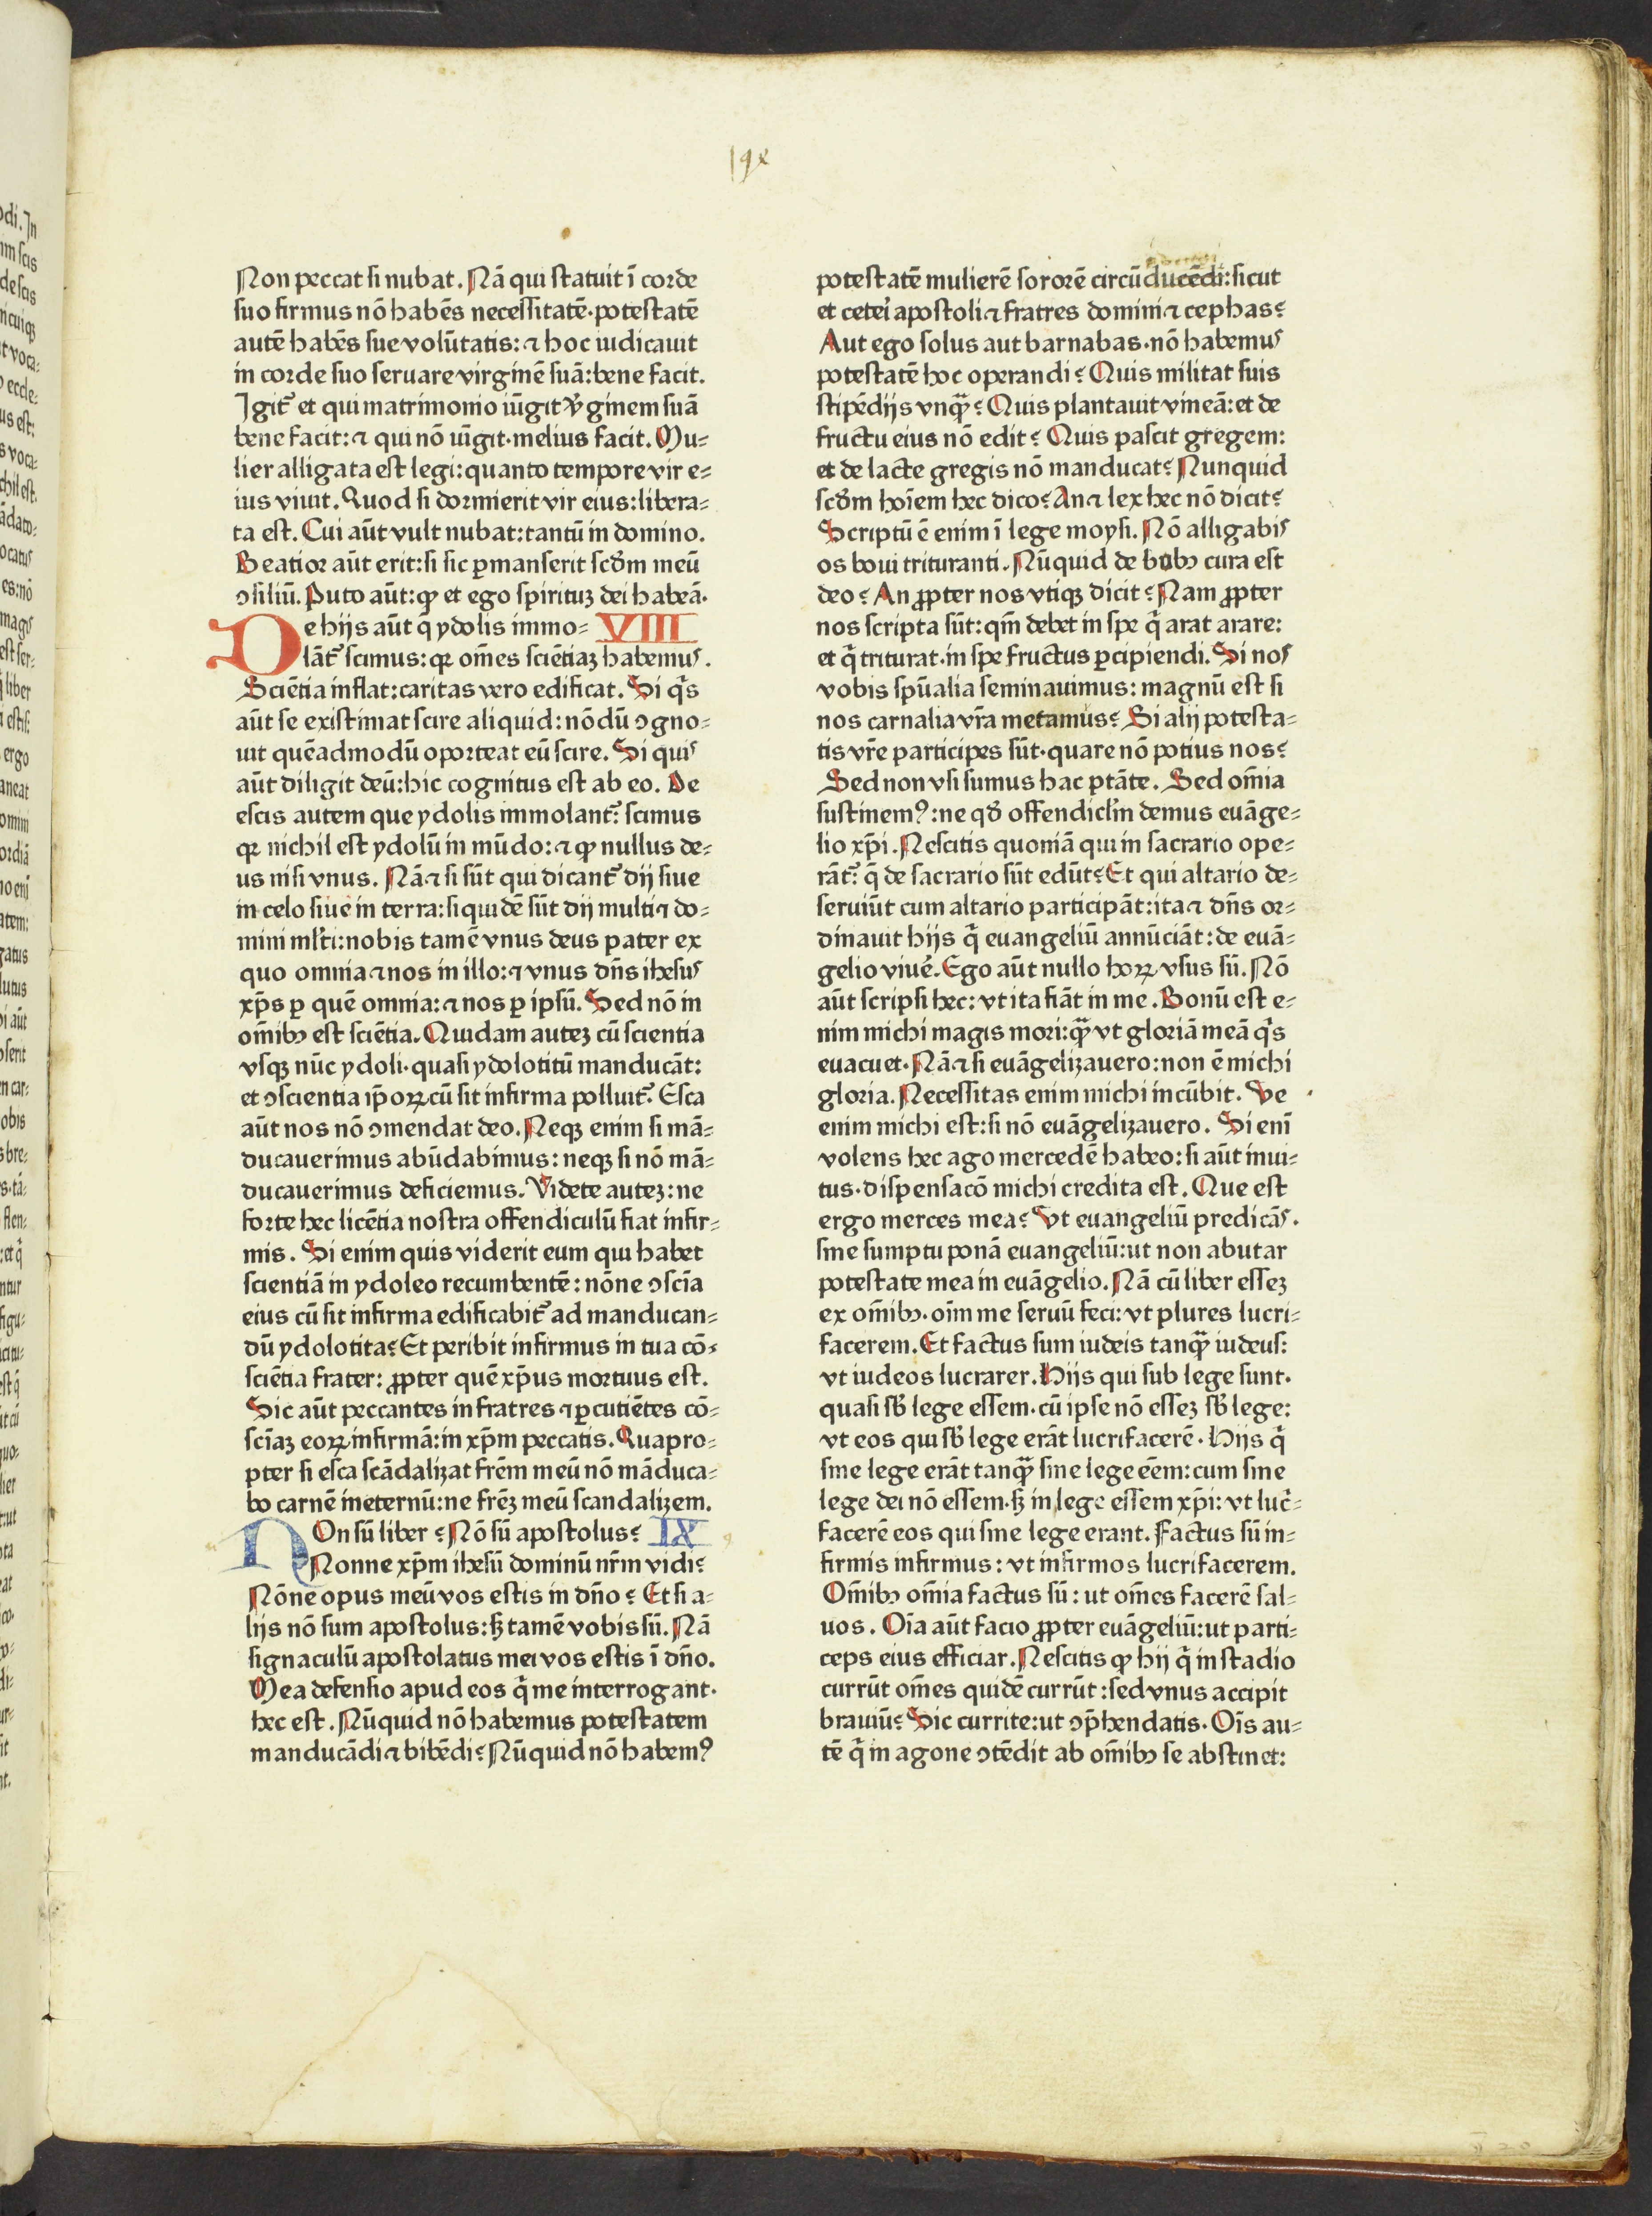 Non peccat si nubat. Nã qui statuit ĩ corde
suo firmus nõ habẽs necessitatẽ·potestatẽ
autẽ habẽs sue volũtatis: ⁊ hoc iudicauit
in corde suo seruare virginẽ suã: bene facit.
Igit᷑ et qui matrimonio iũgit v̾ginem suã
bene facit: ⁊ qui nõ iũgit·melius facit. Mu⸗
lier alligata est legi: quanto tempore vir e⸗
ius viuit. Quod si dormierit vir eius: libera⸗
ta est. Cui aũt vult nubat: tantũ in domino.
Beatior aũt erit: si sic ꝑmanserit scd̾m meũ
ↄsiliũ. Puto aũt: ꝙ et ego spirituʒ dei habeã.
De hijs aũt q̄ ydolis immo⸗ VIII
lãt᷑ scimus: qꝛ om̃es sciẽtiaʒ habemus.
Sciẽtia inflat: caritas vero edificat. Si q̇s
aũt se existimat scire aliquid: nõdũ ↄgno⸗
uit quẽadmodũ oporteat eũ scire. Si quis
aũt diligit deũ: hic cognitus est ab eo. De
escis autem que ydolis immolant᷑: scimus
qꝛ nichil est ydolũ in mũdo: ⁊ ꝙ nullus de⸗
us nisi vnus. Nã ⁊ si sũt qui dicant᷑ dij siue
in celo siue in terra: siquidẽ sũt dij multi ⁊ do⸗
mini ml̾ti: nobis tamẽ vnus deus pater ex
quo omnia ⁊ nos in illo: ⁊ vnus dñs ihesus
xp̃s ꝑ quẽ omnia: ⁊ nos ꝑ ipsũ. Sed nõ in
om̃ibꝫ est sciẽtia. Quidam auteʒ cũ scientia
vsqꝫ nũc ydoli·quasi ydolotitũ manducãt:
et ↄscientia ip̃oꝝ cũ sit infirma polluit᷑. Esca
aũt nos nõ ↄmendat deo. Neqꝫ enim si mã⸗
ducauerimus abũdabimus: neqꝫ si nõ mã⸗
ducauerimus deficiemus. Videte auteʒ: ne
forte hec licẽtia nostra offendiculũ fiat infir⸗
mis. Si enim quis viderit eum qui habet
scientiã in ydoleo recumbentẽ: nõne ↄsciã
eius cũ sit infirma edificabit᷑ ad manducan⸗
dũ ydolotita? Et peribit infirmus in tua cõ⸗
sciẽtia frater: ꝓpter quẽ xp̃us mortuus est.
Sic aũt peccantes in fratres ⁊ ꝑcutiẽtes cõ⸗
sciaʒ eoꝝ infirmã: in xp̃m peccatis. Quapro⸗
pter si esca scãdalizat fr̃em meũ nõ mãduca⸗
bo carnẽ ineternũ: ne fr̃eʒ meũ scandalizem.
NOn sũ liber? Nõ sũ apostolus? IX
Nonne xp̃m ihesũ dominũ nr̃m vidi?
Nõne opus meũ vos estis in dño? Et si a⸗
lijs nõ sum apostolus: sꝫ tamẽ vobis sũ. Nã
signaculũ apostolatus mei vos estis ĩ dño.
Mea defensio apud eos q̄ me interrogant·
hec est. Nũquid nõ habemus potestatem
manducãdi ⁊ bibẽdi? Nũquid nõ habemꝰ
potestatẽ mulierẽ sororẽ circũducẽdi: sicut
et ceteri apostoli ⁊ fratres domini ⁊ cephas?
Aut ego solus aut barnabas·nõ habemus
potestatẽ hoc operandi? Quis militat suis
stipẽdijs vnqꝫ̃? Quis plantauit vineã: et de
fructu eius nõ edit? Quis pascit gregem:
et de lacte gregis nõ manducat? Nunquid
scd̾m hoĩem hec dico? An ⁊ lex hec nõ dicit?
Scriptũ ẽ enim ĩ lege moysi. Nõ alligabis
os boui trituranti. Nũquid de bobꝫ cura est
deo? An ꝓpter nos vtiqꝫ dicit? Nam ꝓpter
nos scripta sũt: qm̃ debet in spe q̄ arat arare:
et q̄ triturat·in spe fructus ꝑcipiendi. Si nos
vobis spũalia seminauimus: magnũ est si
nos carnalia vr̃a metamus? Si alij potesta⸗
tis vr̃e participes sũt·quare nõ potius nos?
Sed non vsi sumus hac ptãte. Sed om̃ia
sustinemꝰ: ne qd̾ offendicl̾m demus euãge⸗
lio xp̃i. Nescitis quoniã qui in sacrario ope⸗
rãt᷑: q̄ de sacrario sũt edũt? Et qui altario de⸗
seruiũt cum altario participãt: ita ⁊ dñs or⸗
dinauit hijs q̄ euangeliũ annũciãt: de euã⸗
gelio viuẽ. Ego aũt nullo hoꝝ vsus sũ. Nõ
aũt scripsi hec: vt ita fiãt in me. Bonũ est e⸗
nim michi magis mori: qꝫ̃ vt gloriã meã q̇s
euacuet. Nã ⁊ si euãgelizauero: non ẽ michi
gloria. Necessitas enim michi incũbit. Ve
enim michi est: si nõ euãgelizauero. Si eni
volens hec ago mercedẽ habeo: si aũt inui⸗
tus·dispensacõ michi credita est. Que est
ergo merces mea? Vt euangeliũ predicãs.
sine sumptu ponã euangeliũ: ut non abutar
potestate mea in euãgelio. Nã cũ liber esseʒ
ex om̃ibꝫ·oĩm me seruũ feci: vt plures lucri⸗
facerem. Et factus sum iudeis tanqꝫ̃ iudeus:
vt iudeos lucrarer. Hijs qui sub lege sunt·
quasi sb̾ lege essem·cũ ipse nõ esseʒ sb̾ lege:
vt eos qui sb̾ lege erãt lucrifacerẽ. Hijs q̄
sine lege erãt tanqꝫ̃ sine lege eẽm: cum sine
lege dei nõ essem·sꝫ in lege essem xp̃i: vt luc̾⸗
facerẽ eos qui sine lege erant. Factus sũ in⸗
firmis infirmus: vt infirmos lucrifacerem.
Om̃ibꝫ om̃ia factus sũ: ut om̃es facerẽ sal⸗
uos. Oĩa aũt facio ꝓpter euãgeliũ: ut parti⸗
ceps eius efficiar. Nescitis ꝙ hij q̄ in stadio
currũt om̃es quidẽ currũt: sed vnus accipit
brauiũ? Sic currite: ut ↄp̃hendatis. Oĩs au⸗
tẽ q̄ in agone ↄtẽdit ab om̃ibꝫ se abstinet: